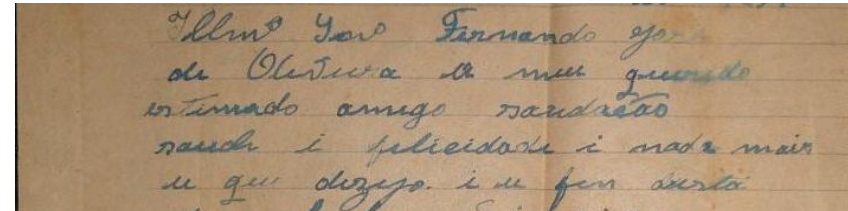 Illmº Snrº Fernando José
de Oliveira a meu querido
estimado amigo saudação
saude i felicidade i nada mais
u que dezejo. i u fin desta